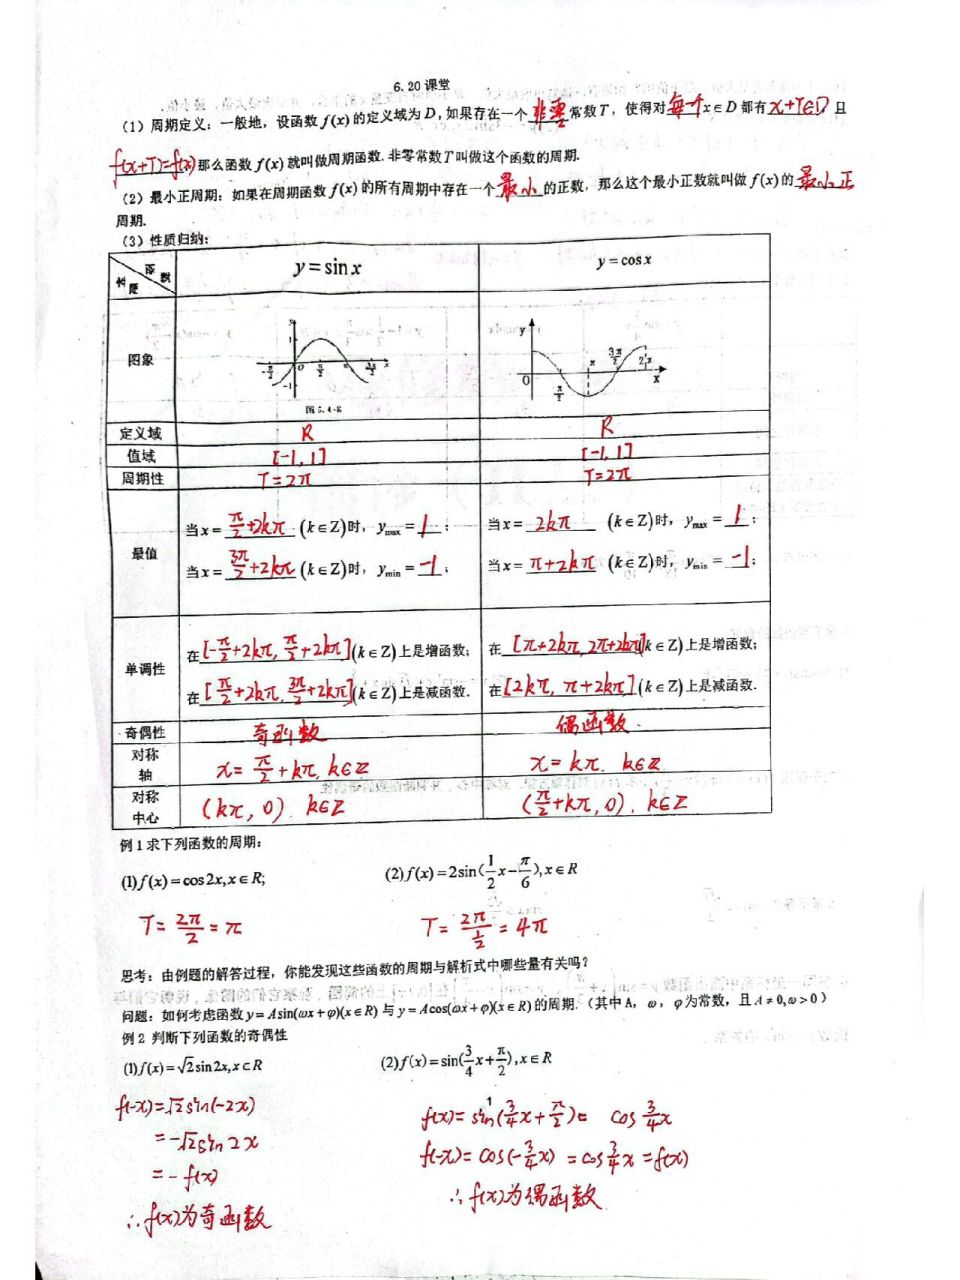 6.20课堂
(1) 周期定义：一般地，设函数 f(x) 的定义域为 D，如果存在一个 非零 常数 T，使得对 每一个 x∈D 都有 x+T∈D 且
f(x+T)=f(x) 那么函数 f(x) 就叫做周期函数. 非零常数 T 叫做这个函数的周期.
(2) 最小正周期：如果在周期函数 f(x) 的所有周期中存在一个 最小 的正数，那么这个最小正数就叫做 f(x) 的 最小正
周期.
(3) 性质归纳：
函数
性质
y=sin x
y=cos x
图象
y
1
-π/2
O
π/2
π
3π/2
x
-1
图 5.4-8
y
0
π/2
π
3π/2
2π
x
定义域
R
R
值域
[-1, 1]
[-1, 1]
周期性
T=2π
T=2π
最值
当x= π/2+2kπ (k∈Z)时，y max = 1 ；
当x= 3π/2+2kπ (k∈Z)时，y min = -1 ；
当x= 2kπ (k∈Z)时，y max = 1 ；
当x= π+2kπ (k∈Z)时，y min = -1 ；
单调性
在 [-π/2+2kπ, π/2+2kπ] (k∈Z)上是增函数；
在 [π/2+2kπ, 3π/2+2kπ] (k∈Z)上是减函数.
在 [π+2kπ, 2π+2kπ] (k∈Z)上是增函数；
在 [2kπ, π+2kπ] (k∈Z)上是减函数.
奇偶性
奇函数
偶函数.
对称
轴
x= π/2+kπ, k∈Z
x=kπ. k∈Z
对称
中心
(kπ, 0). k∈Z
(π/2+kπ, 0). k∈Z
例 1 求下列函数的周期：
(1) f(x)=cos2x, x∈R;
(2) f(x)=2sin(1/2 x-π/6), x∈R
T= 2π/2 = π
T= 2π/(1/2) = 4π
思考：由例题的解答过程，你能发现这些函数的周期与解析式中哪些量有关吗？
问题：如何考虑函数 y=Asin(ωx+φ)(x∈R) 与 y=Acos(ωx+φ)(x∈R) 的周期.（其中 A，ω，φ为常数，且 A≠0,ω>0）
例 2 判断下列函数的奇偶性
(1) f(x)=√2 sin2x, x∈R
(2) f(x)=sin(3/4 x+π/2), x∈R
f(-x)=√2 sin(-2x)
=-√2 sin2x
=-f(x)
∴f(x)为奇函数
f(x)= sin(3/4 x+π/2)= cos 3/4 x
f(-x)= cos(-3/4 x) =cos 3/4 x =f(x)
∴f(x)为偶函数